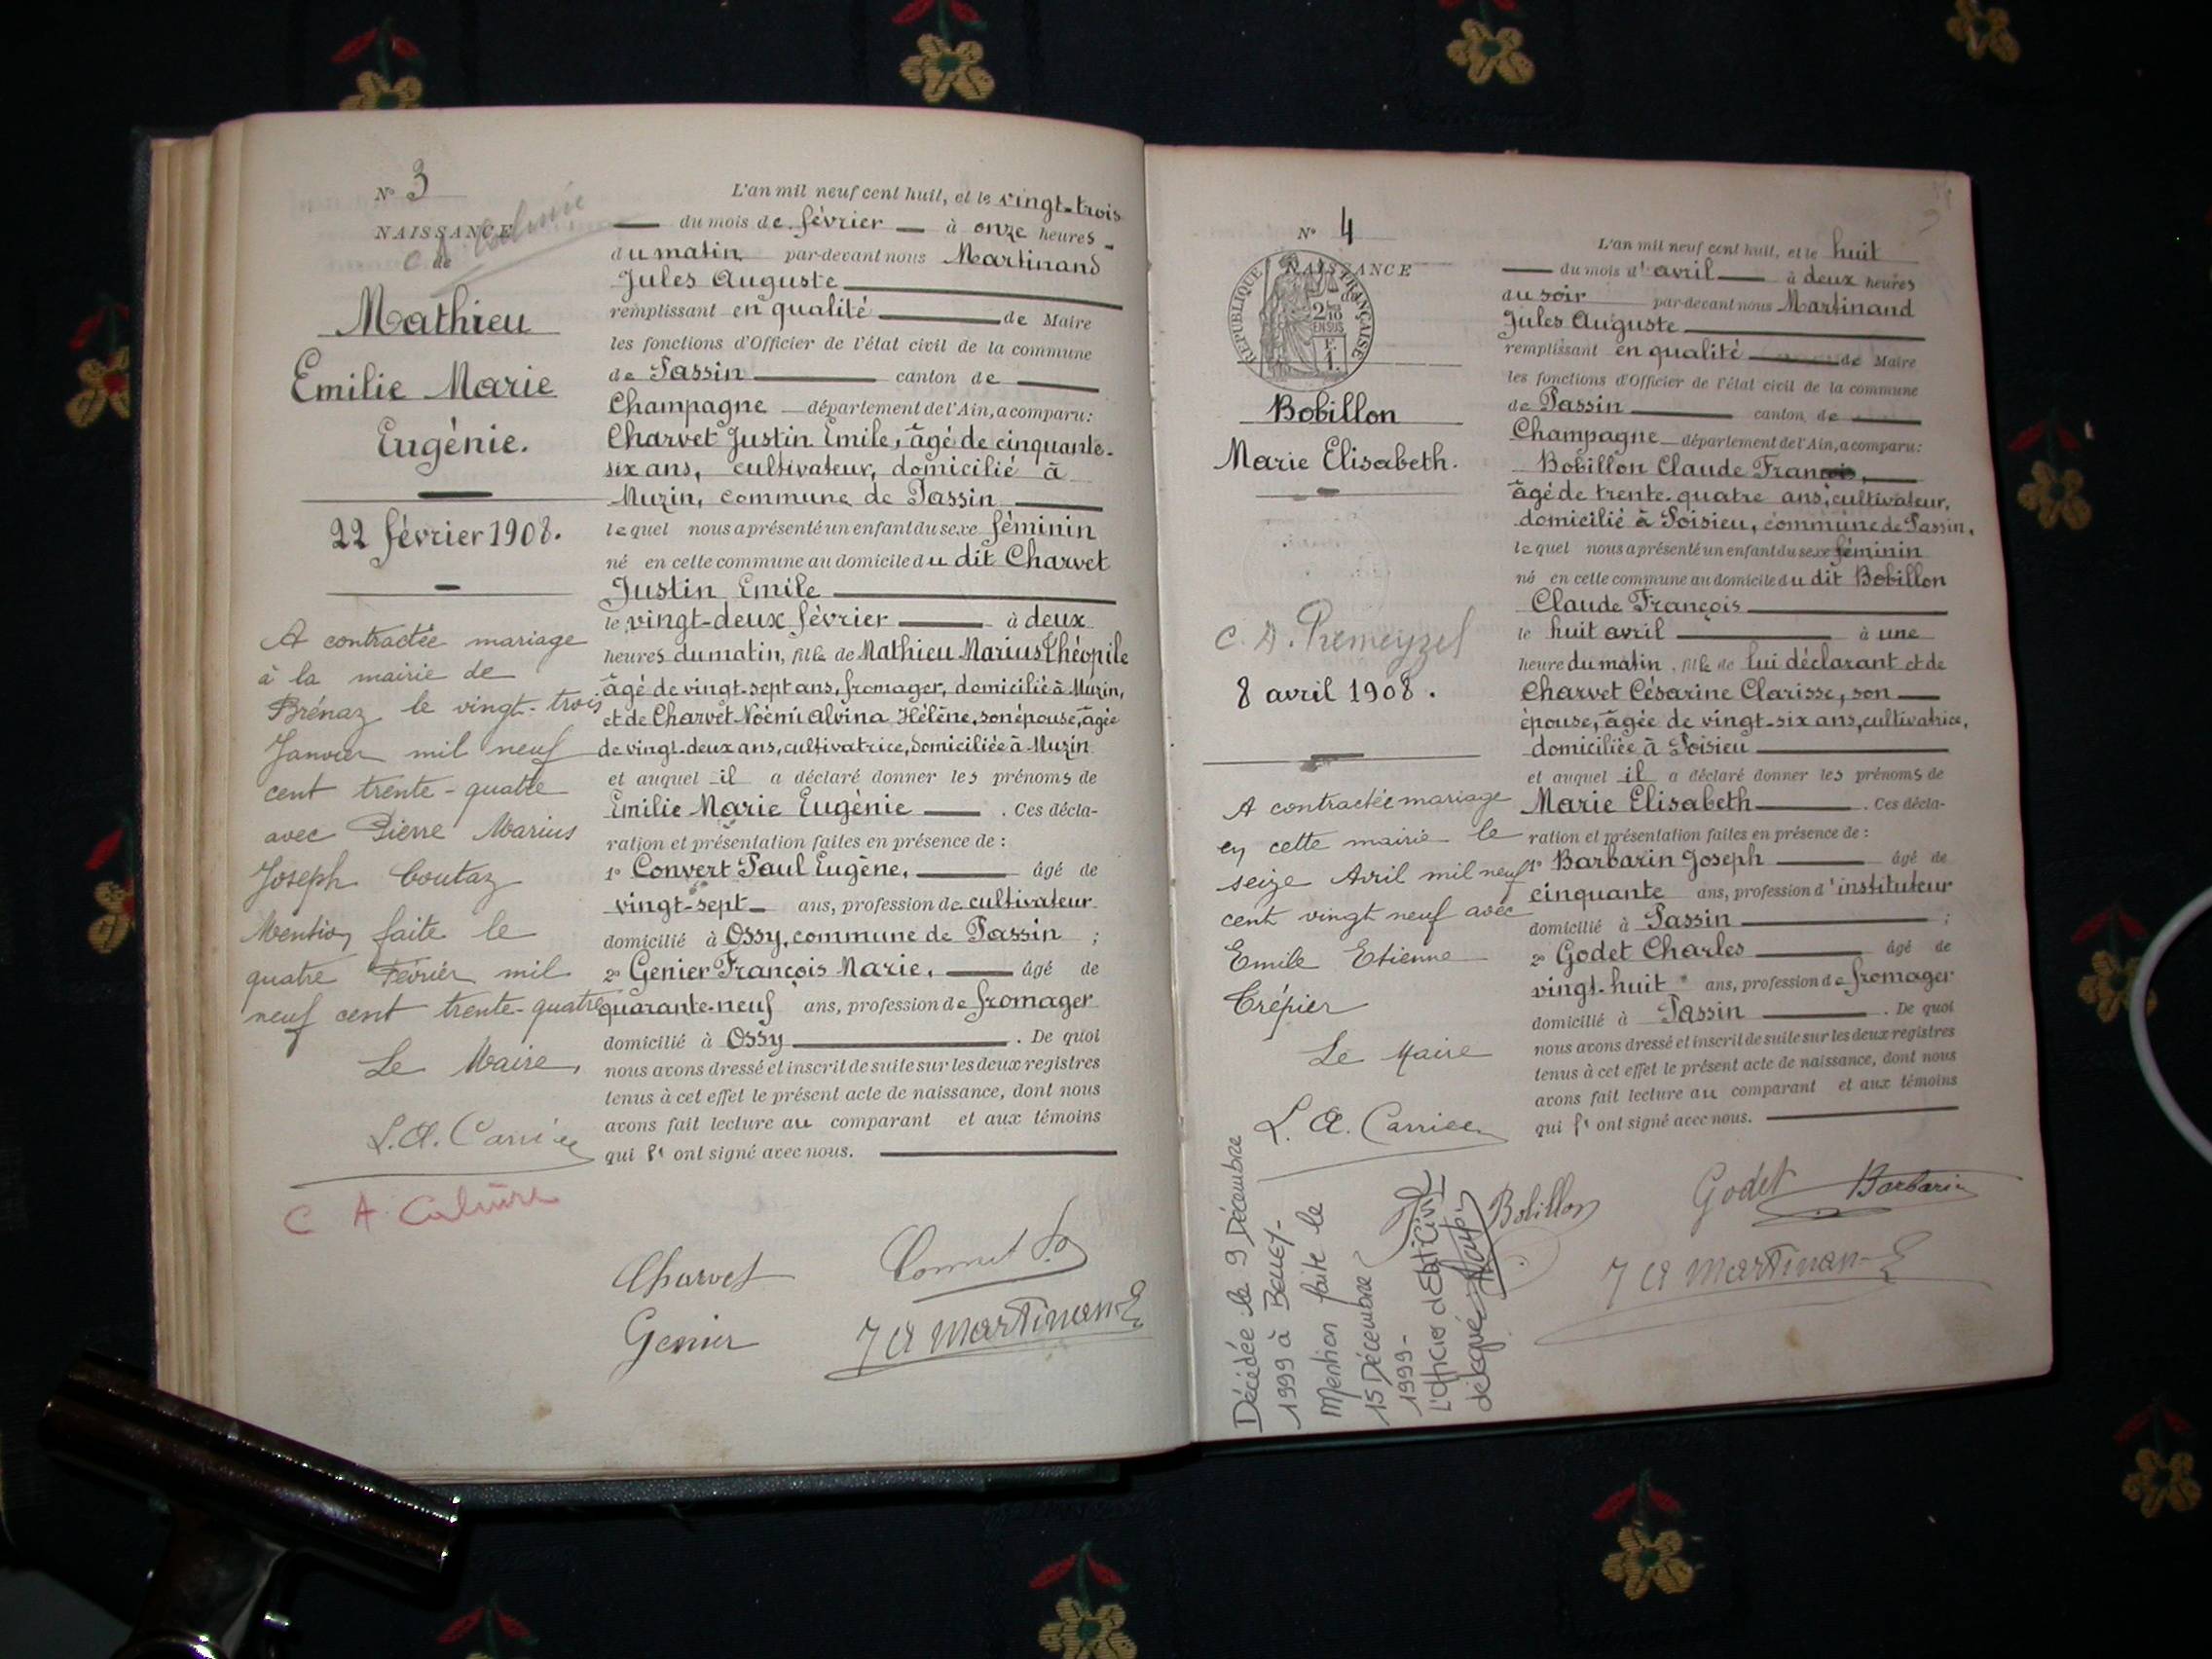 N° 3
NAISSANCE
de
Mathieu
Emilie Marie
Eugénie.
22 février 1908.
A contractée mariage
à la mairie de
Brénaz le vingt-trois
Janvier mil neuf
cent trente-quatre
avec Pierre Marius
Joseph Coutaz
Mention faite le
quatre Février mil
neuf cent trente-quatre
Le Maire,
C A Caluire
L'an mil neuf cent huit, et le vingt-trois
du mois de février à onze heures
du matin par-devant nous Martinand
Jules Auguste
remplissant en qualité de Maire
les fonctions d'Officier de l'état civil de la commune
de Passin canton de
Champagne département de l'Ain, a comparu:
Charvet Justin Emile, âgé de cinquante-
six ans, cultivateur, domicilié à
Muzin, commune de Passin
lequel nous a présenté un enfant du sexe féminin
né en cette commune au domicile du dit Charvet
Justin Emile
le vingt-deux février à deux
heures du matin, fille de Mathieu Marius Théopile
âgé de vingt-sept ans, fromager, domicilié à Muzin,
et de Charvet Noémi Alvina Hélène, son épouse, âgée
de vingt-deux ans, cultivatrice, domiciliée à Muzin
et auquel il a déclaré donner les prénoms de
Emilie Marie Eugénie . Ces décla-
ration et présentation faites en présence de :
1° Convert Paul Eugène, âgé de
vingt-sept ans, profession de cultivateur
domicilié à Ossy, commune de Passin ;
2° Genier François Marie, âgé de
quarante-neuf ans, profession de fromager
domicilié à Ossy . De quoi
nous avons dressé et inscrit de suite sur les deux registres
tenus à cet effet le présent acte de naissance, dont nous
avons fait lecture au comparant et aux témoins
qui l' ont signé avec nous.
Charvet
Genier
J A Martinand
N° 4
NAISSANCE
de
REPUBLIQUE FRANÇAISE
2/10
EN SUS
Bobillon
Marie Elisabeth.
C. A. Premeyzel
8 avril 1908.
A contractée mariage
en cette mairie le
seize Avril mil neuf
cent vingt neuf avec
Emile Etienne
Crépier
Le Maire
Décédée le 9 Décembre
1999 à
Mention faite le
15 Décembre
1999-
L'officier d'Etat Civil
délégué
L'an mil neuf cent huit, et le huit
du mois d'avril à deux heures
du soir par-devant nous Martinand
Jules Auguste
remplissant en qualité de Maire
les fonctions d'Officier de l'état civil de la commune
de Passin canton de
Champagne département de l'Ain, a comparu:
Bobillon Claude François,
âgé de trente-quatre ans, cultivateur,
domicilié à Poisieu, commune de Passin,
lequel nous a présenté un enfant du sexe féminin
né en cette commune au domicile du dit Bobillon
Claude François
le huit avril à une
heure du matin, fille de lui déclarant et de
Charvet Césarine Clarisse, son
épouse, âgée de vingt-six ans, cultivatrice,
domiciliée à Poisieu
et auquel il a déclaré donner les prénoms de
Marie Elisabeth . Ces décla-
ration et présentation faites en présence de :
1° Barbarin Joseph âgé de
cinquante ans, profession d'instituteur
domicilié à Passin ;
2° Godet Charles âgé de
vingt-huit ans, profession de fromager
domicilié à Passin . De quoi
nous avons dressé et inscrit de suite sur les deux registres
tenus à cet effet le présent acte de naissance, dont nous
avons fait lecture au comparant et aux témoins
qui l' ont signé avec nous.
Bobillon
Godet Barbarin
J A Martinand